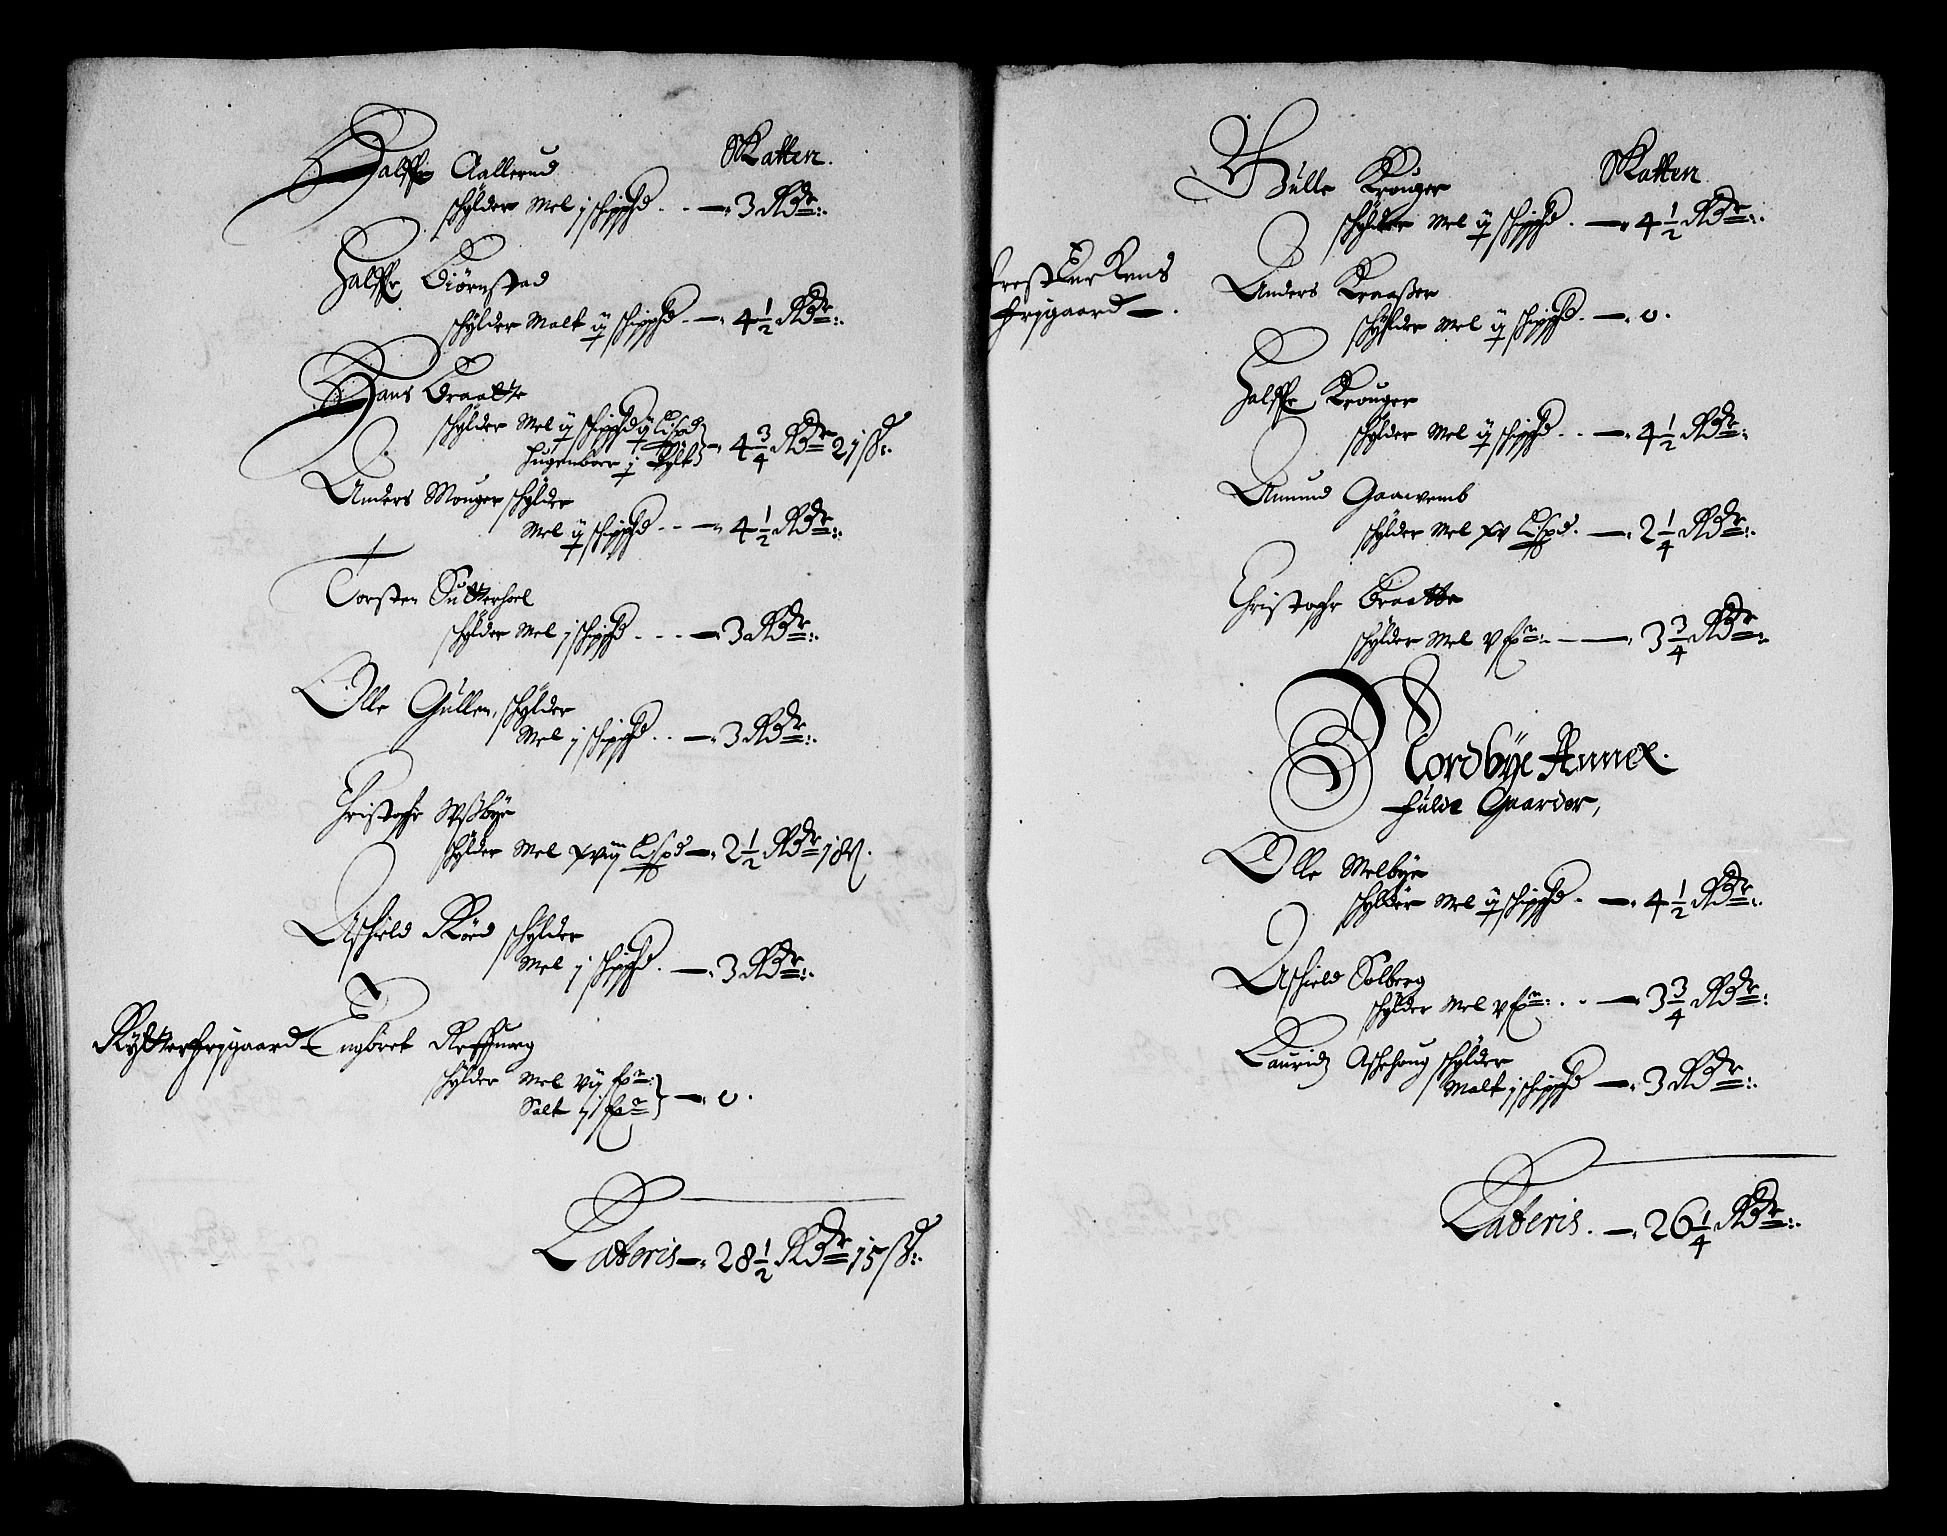 Skatten.
Halffue Aallerud
schylder Mel j schippd. - - 3 Rdr:
Halffue Biörnstad
schylder Malt ij schippd. - 4½ Rdr:
Hans Braatte
schylder Mel ij schippd ij Lispd
Hugenboer j
4¾ Rdr 21 ß:
Anders Mouger schylder
Mel ij schippd - - 4½ Rdr:
Torsten Sutterhoel
schylder Mel j schippd - - - 3 Rdr:
Olle Gullen, schylder
Mel j schippd. . - 3 Rdr:
Christopher Vssbye
schylder Mel xviij Lispd - 2½ Rdr 18 ß.
Aschield Röed schylder
Mel j schippd. - 3 Rdr:
Rytterfrjgaard - Engbret Reffhoug
schylder Mel vij
Salt ij
- 0.
Lateris - 28½ Rdr 15 ß:
Skatten
Gulle Krouger
schylder Mel ij schippd. - 4½ Rdr:
Prest Enckens
frjgaard -.
Anders Kraasser
schylder Mel ij schippd. - 0.
Halffue Krouger
schylder Mel ij schippd. - - 4½ Rdr:
Amund Gaarvemb
schylder Mel xv Lispd. - 2¼ Rdr:
Christopher Braatte
schylder Mel v - 3¾ Rdr:
Nordbye Annex.
Fulde Gaarder,
Olle Melbye
schylder Mel ij schippd - 4½ Rdr:
Aschield Solberg
schylder Mel v - 3¾ Rdr:
Lauridz Aschehoug schylder
Malt j schippd - 3 Rdr:
Lateris. - 26¼ Rdr: